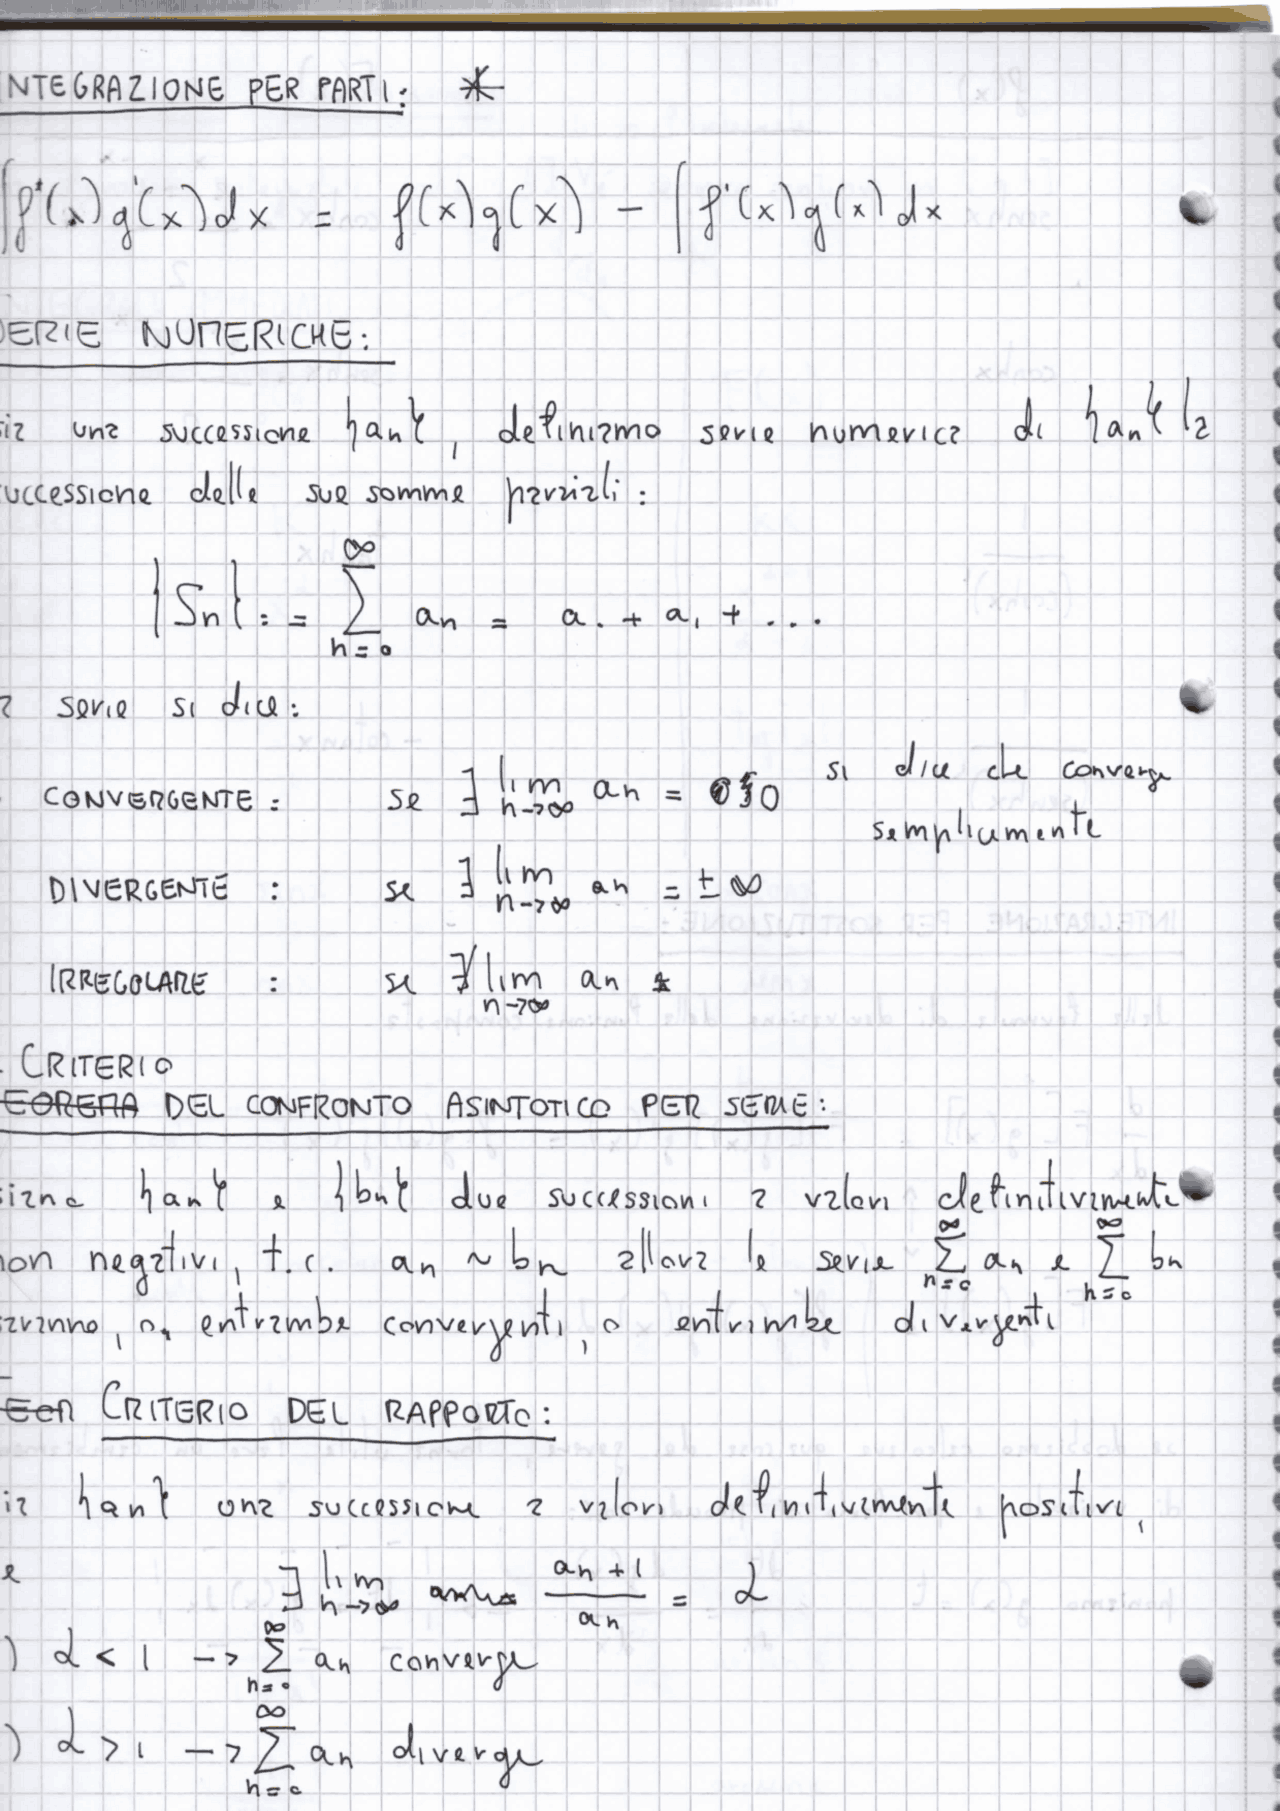 NTEGRAZIONE PER PARTI: *
∫f(x)g'(x)dx = f(x)g(x) - ∫f'(x)g(x)dx
ERIE NUMERICHE:
sia una successione {an}, definiamo serie numerica di {an} la
uccessione delle sue somme parziali:
{Sn} := ∑_{n=0}^{∞} an = a. + a1 + ...
a serie si dice:
CONVERGENTE: se ∃ lim_{n→∞} an = 0 si dice che converge
semplicemente
DIVERGENTE : se ∃ lim_{n→∞} an = ±∞
IRREGOLARE : se ∄ lim_{n→∞} an
CRITERIO
EOREMA DEL CONFRONTO ASINTOTICO PER SERIE:
siano {an} e {bn} due successioni a valori definitivamente
non negativi, t.c. an ~ bn allora le serie ∑_{n=0}^{∞} an e ∑_{n=0}^{∞} bn
saranno, o, entrambe convergenti, o entrambe divergenti
CRITERIO DEL RAPPORTO:
ia {an} una successione a valori definitivamente positivi,
e ∃ lim_{n→∞} an+1/an = α
) α < 1 -> ∑_{n=0}^{∞} an converge
) α > 1 -> ∑_{n=0}^{∞} an diverge